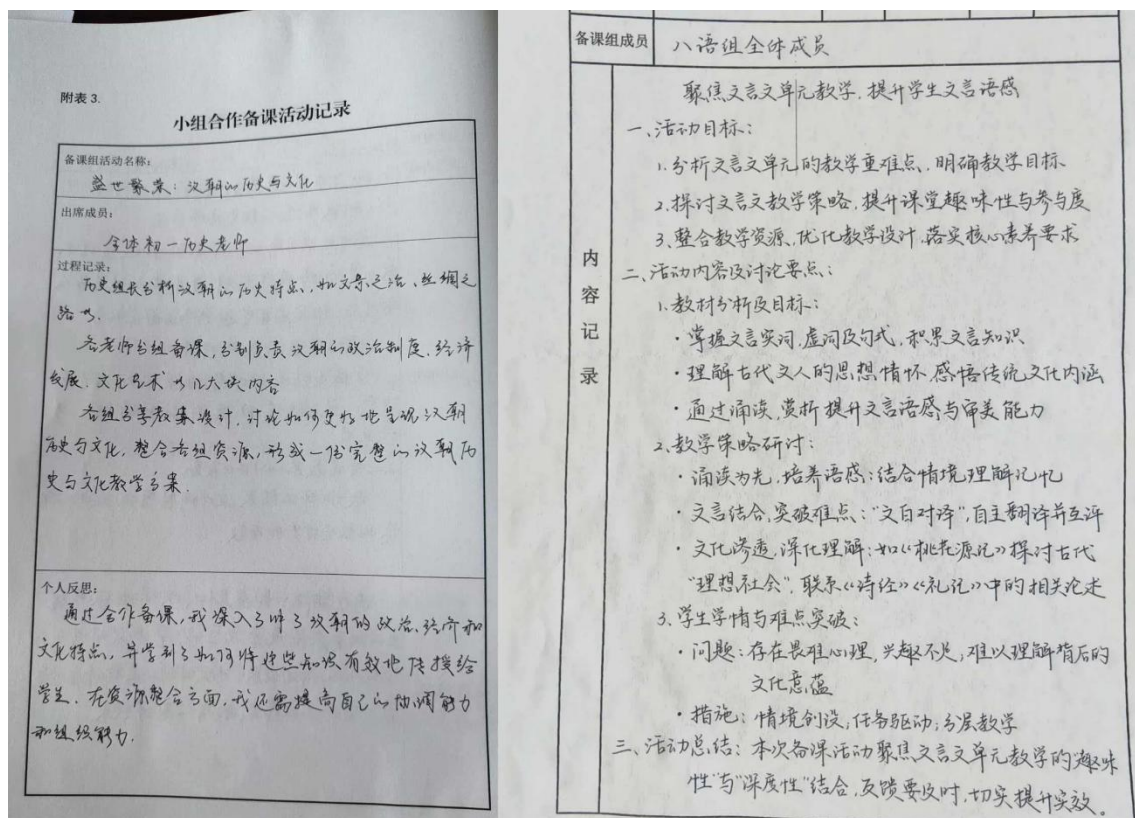 附表 3.
小组合作备课活动记录
备课组活动名称：
盛世繁荣：汉朝的历史与文化
出席成员：
全体初一历史老师
过程记录：
历史组长分析汉朝的历史特点，如文景之治、丝绸之
路等.
各老师分组备课，分别负责汉朝的政治制度、经济
发展、文化艺术等几大块内容
各组分享教案设计，讨论如何更好地呈现汉朝
历史与文化，整合各组资源，形成一份完整的汉朝历
史与文化教学方案.
个人反思：
通过合作备课，我深入了解了汉朝的政治、经济和
文化特点，并学到了如何将这些知识有效地传授给
学生. 在资源整合方面，我还需提高自己的协调能力
和组织能力.
备课组成员 八语组全体成员
内容记录
聚焦文言文单元教学，提升学生文言语感
一、活动目标：
1.分析文言文单元的教学重难点，明确教学目标
2.探讨文言文教学策略，提升课堂趣味性与参与度
3、整合教学资源，优化教学设计，落实核心素养要求
二、活动内容及讨论要点：
1.教材分析及目标：
·掌握文言实词，虚词及句式，积累文言知识
·理解古代文人的思想情怀，感悟传统文化内涵
·通过诵读，赏析提升文言语感与审美能力
2、教学策略研讨：
·诵读为先，培养语感；结合情境理解记忆
·文言结合，突破难点："文白对译"，自主翻译并互评
·文化渗透，深化理解：如《桃花源记》探讨古代
"理想社会"，联系《诗经》《礼记》中的相关论述
3、学生学情与难点突破：
·问题：存在畏难心理，兴趣不足，难以理解背后的
文化意蕴
·措施：情境创设；任务驱动；分层教学
三、活动总结：本次备课活动聚焦文言文单元教学的"趣味
性"与"深度性"结合，反馈要及时，切实提升实效。